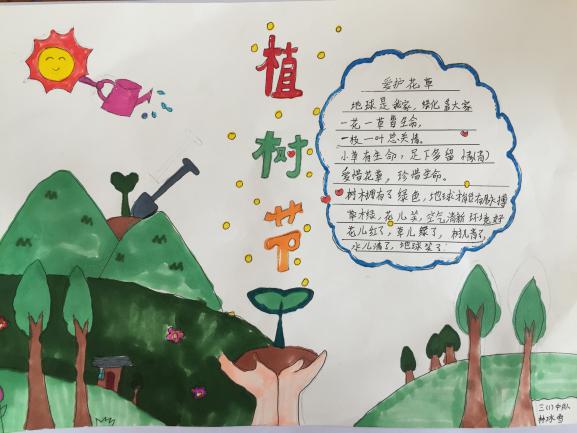 植树节
爱护花草
地球是我家，绿化靠大家
一花一草皆生命，
一枝一叶总关情。
小草有生命，足下多留情
爱惜花草，珍惜生命。
树木拥有了绿色，地球才有脉搏
草才绿，花儿笑，空气清新环境好
花儿红了，草儿绿了，树儿青了，
水儿清了，地球笑了
三(1)中队